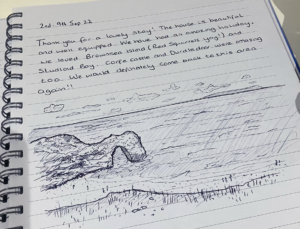 2nd - 9th Sep 22
Thank you for a lovely stay! The house is beautiful
and well equipped. We have had an amazing holiday,
we loved Brownsea Island (Red Squirrels yay!) and
Studland Bay. Corfe castle and Durdledoor were amazing
too. We would definitely come back to this area
again!!